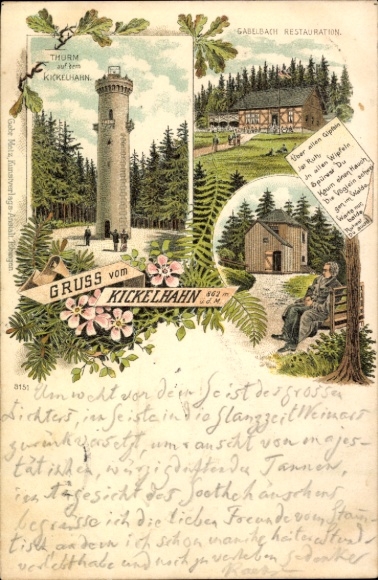 THURM
auf dem
KICKELHAHN.
GABELBACH RESTAURATION.
Über allen Gipfeln
ist Ruh,
in allen Wipfeln
Spürest Du
Kaum einen Hauch
Die Vöglein schwei-
gen im Walde.
Warte nur,
balde
Ruhest
GRUSS vom
KICKELHAHN 862 m
ü.d.M.
3151
Umweht vom dem Geist des grossen
Dichters, im Geiste in die Glanzzeit Weimars
zurückversetzt, umrauscht von majes-
tätischen, würzig duftenden Tannen,
im Angesicht des Goethehäuschens
begrüsse ich die lieben Freunde vom Stamm-
tisch an dem ich schon manche heitere
verlebt habe und noch zu verleben gedenke